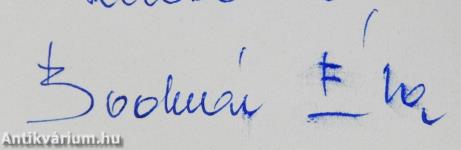 Bodnár Éva
Antikvárium.hu